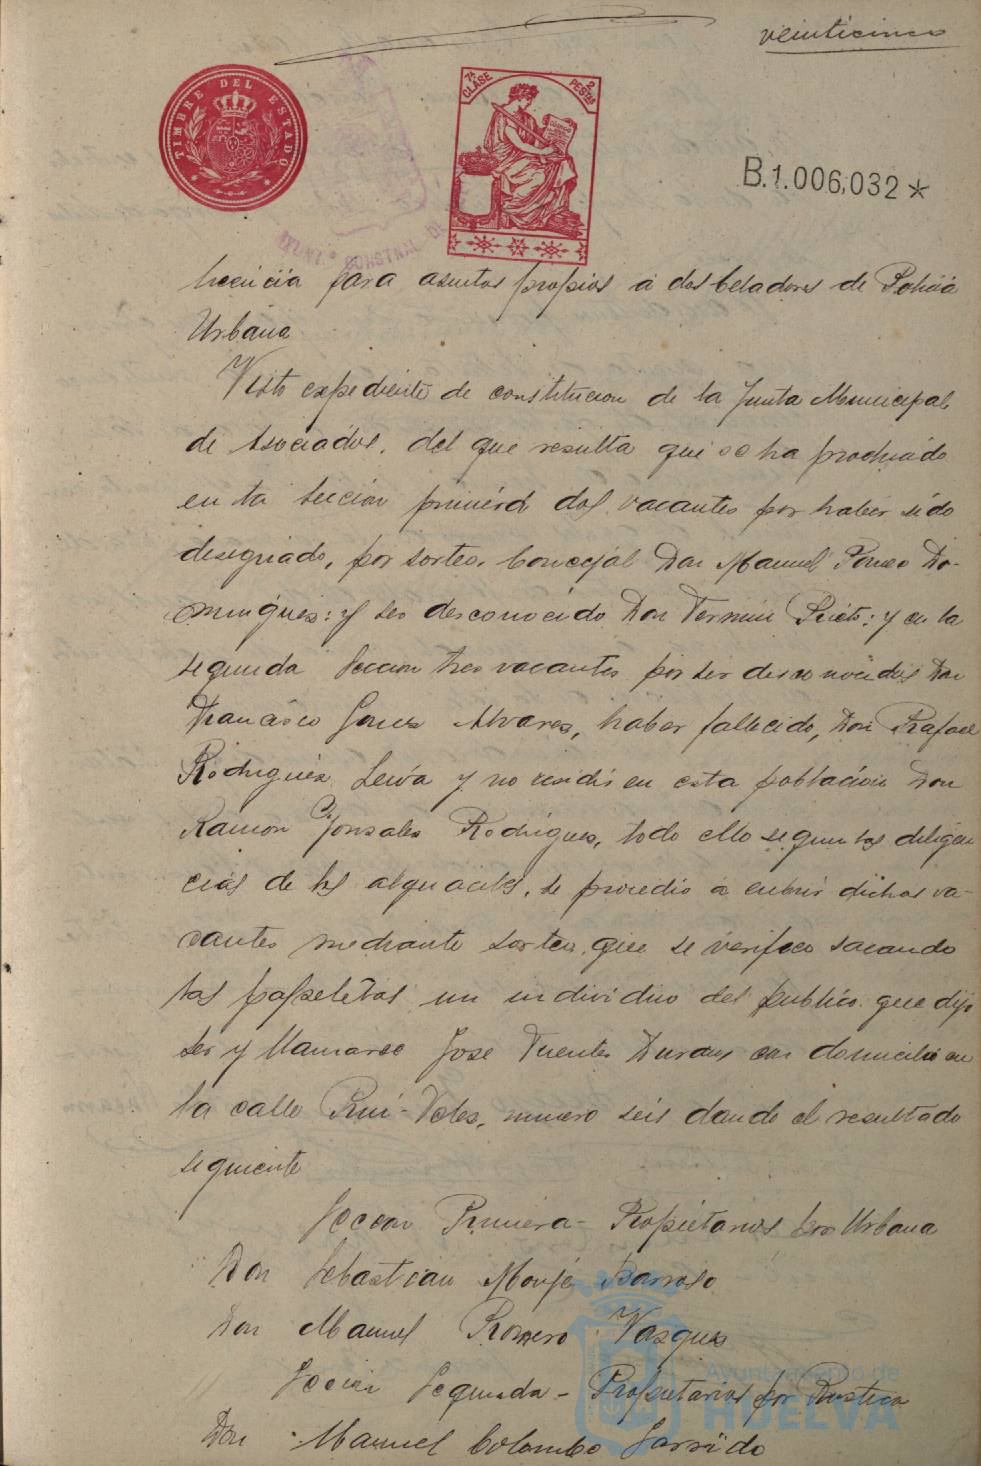 veinticinco
TIMBRE DEL ESTADO
7ª CLASE 2 PESTAS
B.1.006,032*
AYUNTº CONSTNAL DE
licencia para asuntos propios a dos beladores de Policia
Urbana
Visto expediente de constitucion de la Junta Municipal
de Asociados, del que resulta que se ha producido
en la seccion primera dos vacantes por haber sido
designado, por sorteo, Concejal Don Manuel Ponce Do-
mingues: y ser desconocido Don Fermin Prieto: y en la
segunda Seccion tres vacantes por ser desconocidos Don
Francisco Gomes Alvares, haber fallecido, Don Rafael
Rodrigues Leiva y no residir en esta poblacion Don
Ramon Gonsales Rodrigues, todo ello segun las diligen
cias de los alguaciles, se procedio a cubrir dichas va-
cantes mediante sorteo, que se verifico sacando
las papeletas un individuo del publico que dijo
ser y llamarse Jose Fuentes Duran con domicilio en
la calle Rui-Veles, numero seis dando el resultado
siguiente
Seccion Primera - Propietarios por Urbana
Don Sebastian Monje Barroso
Don Manuel Romero Vasques
Seccion Segunda - Propietarios por Rustica
Don Manuel Colombo Garrido
Ayuntamiento de
HUELVA